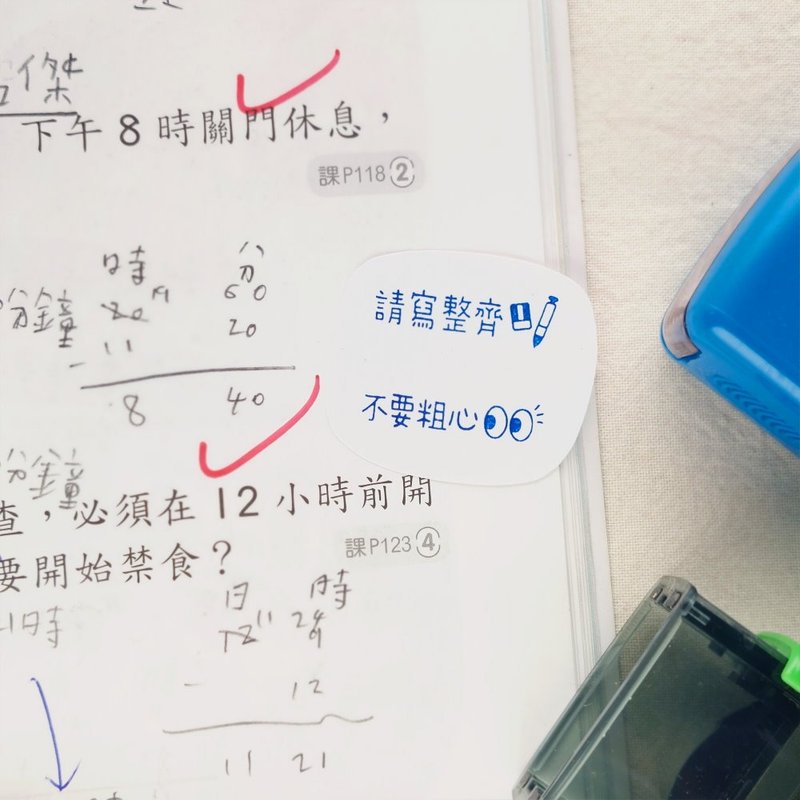 傑
下午8時關門休息，
課P118②
時 分
分鐘 20 19 60
20
- 11
8 40
請寫整齊
不要粗心
分鐘
查，必須在12小時前開
課P123④
要開始禁食？
日 時
21時 12 11 24
9
- 12
11 21